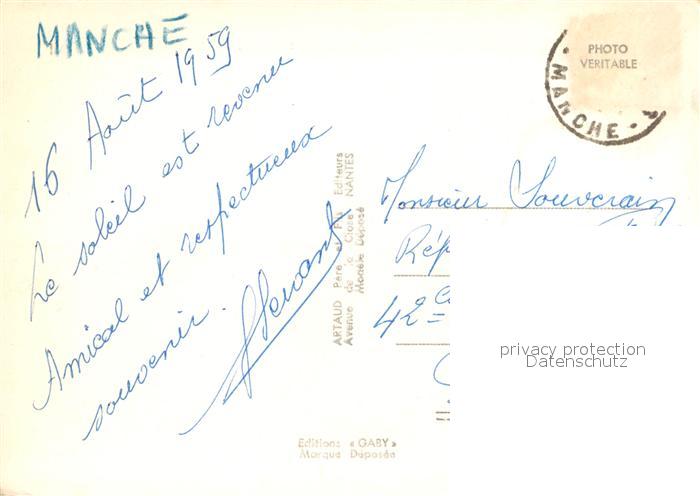 MANCHE
16 Août 1959
Le soleil est revenu
Amical et respectueux
souvenir.
ARTAUD Père et Fils Editeurs
Avenue de la Close NANTES
Modèle Déposé
Editions « GABY »
Marque Déposée
PHOTO
VERITABLE
MANCHE
Monsieur Souverain
Rép
42
privacy protection
Datenschutz